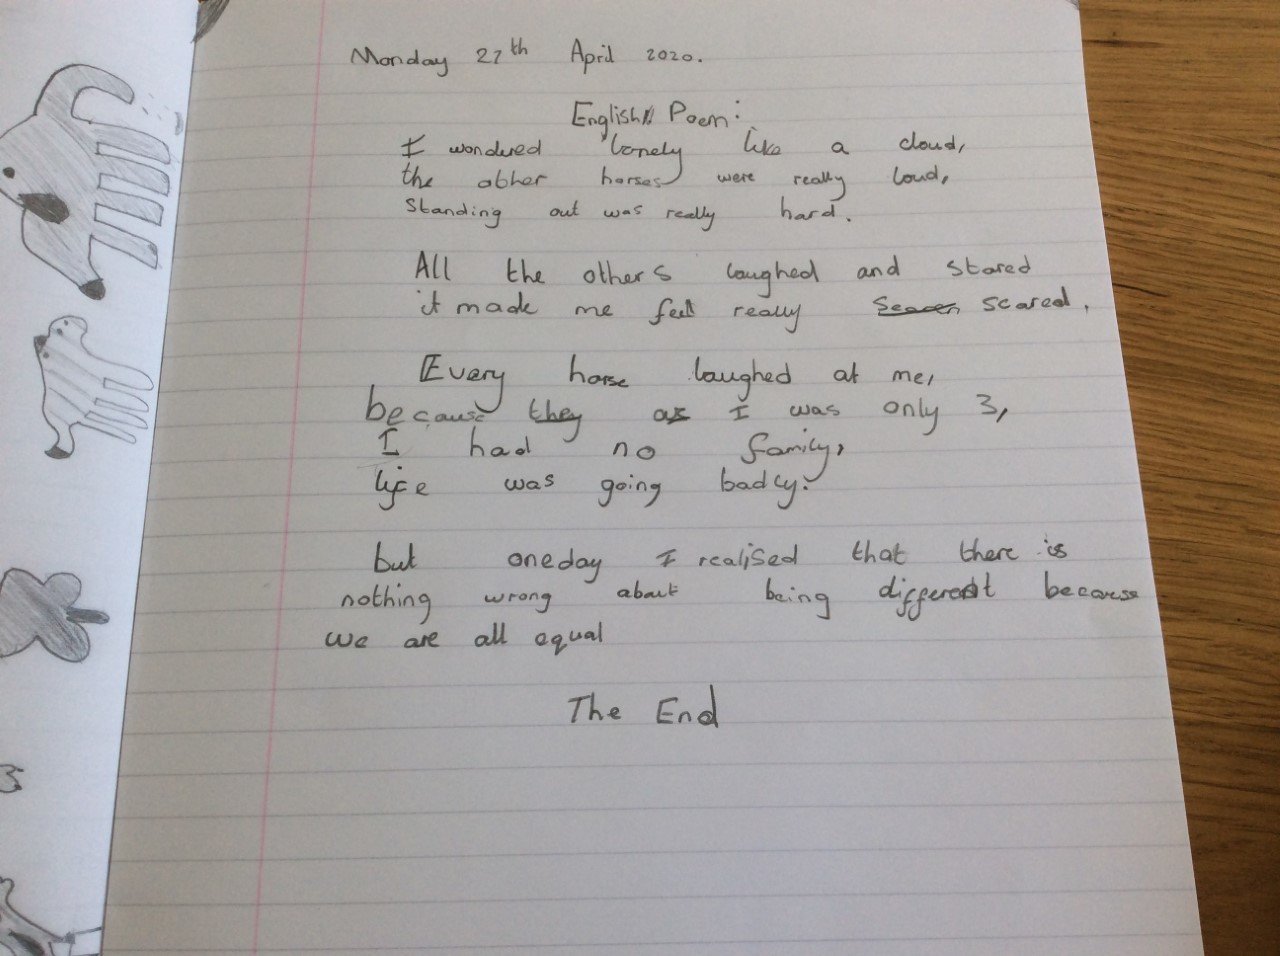 Monday 27th April 2020.
English Poem:
I wondured lonely like a cloud,
the other horses were really loud,
Standing out was really hard.
All the others laughed and stared
it made me felt really scared.
Every horse laughed at me,
because they as I was only 3,
I had no family,
life was going badly.
but oneday I realised that there is
nothing wrong about being different because
we are all equal
The End
3